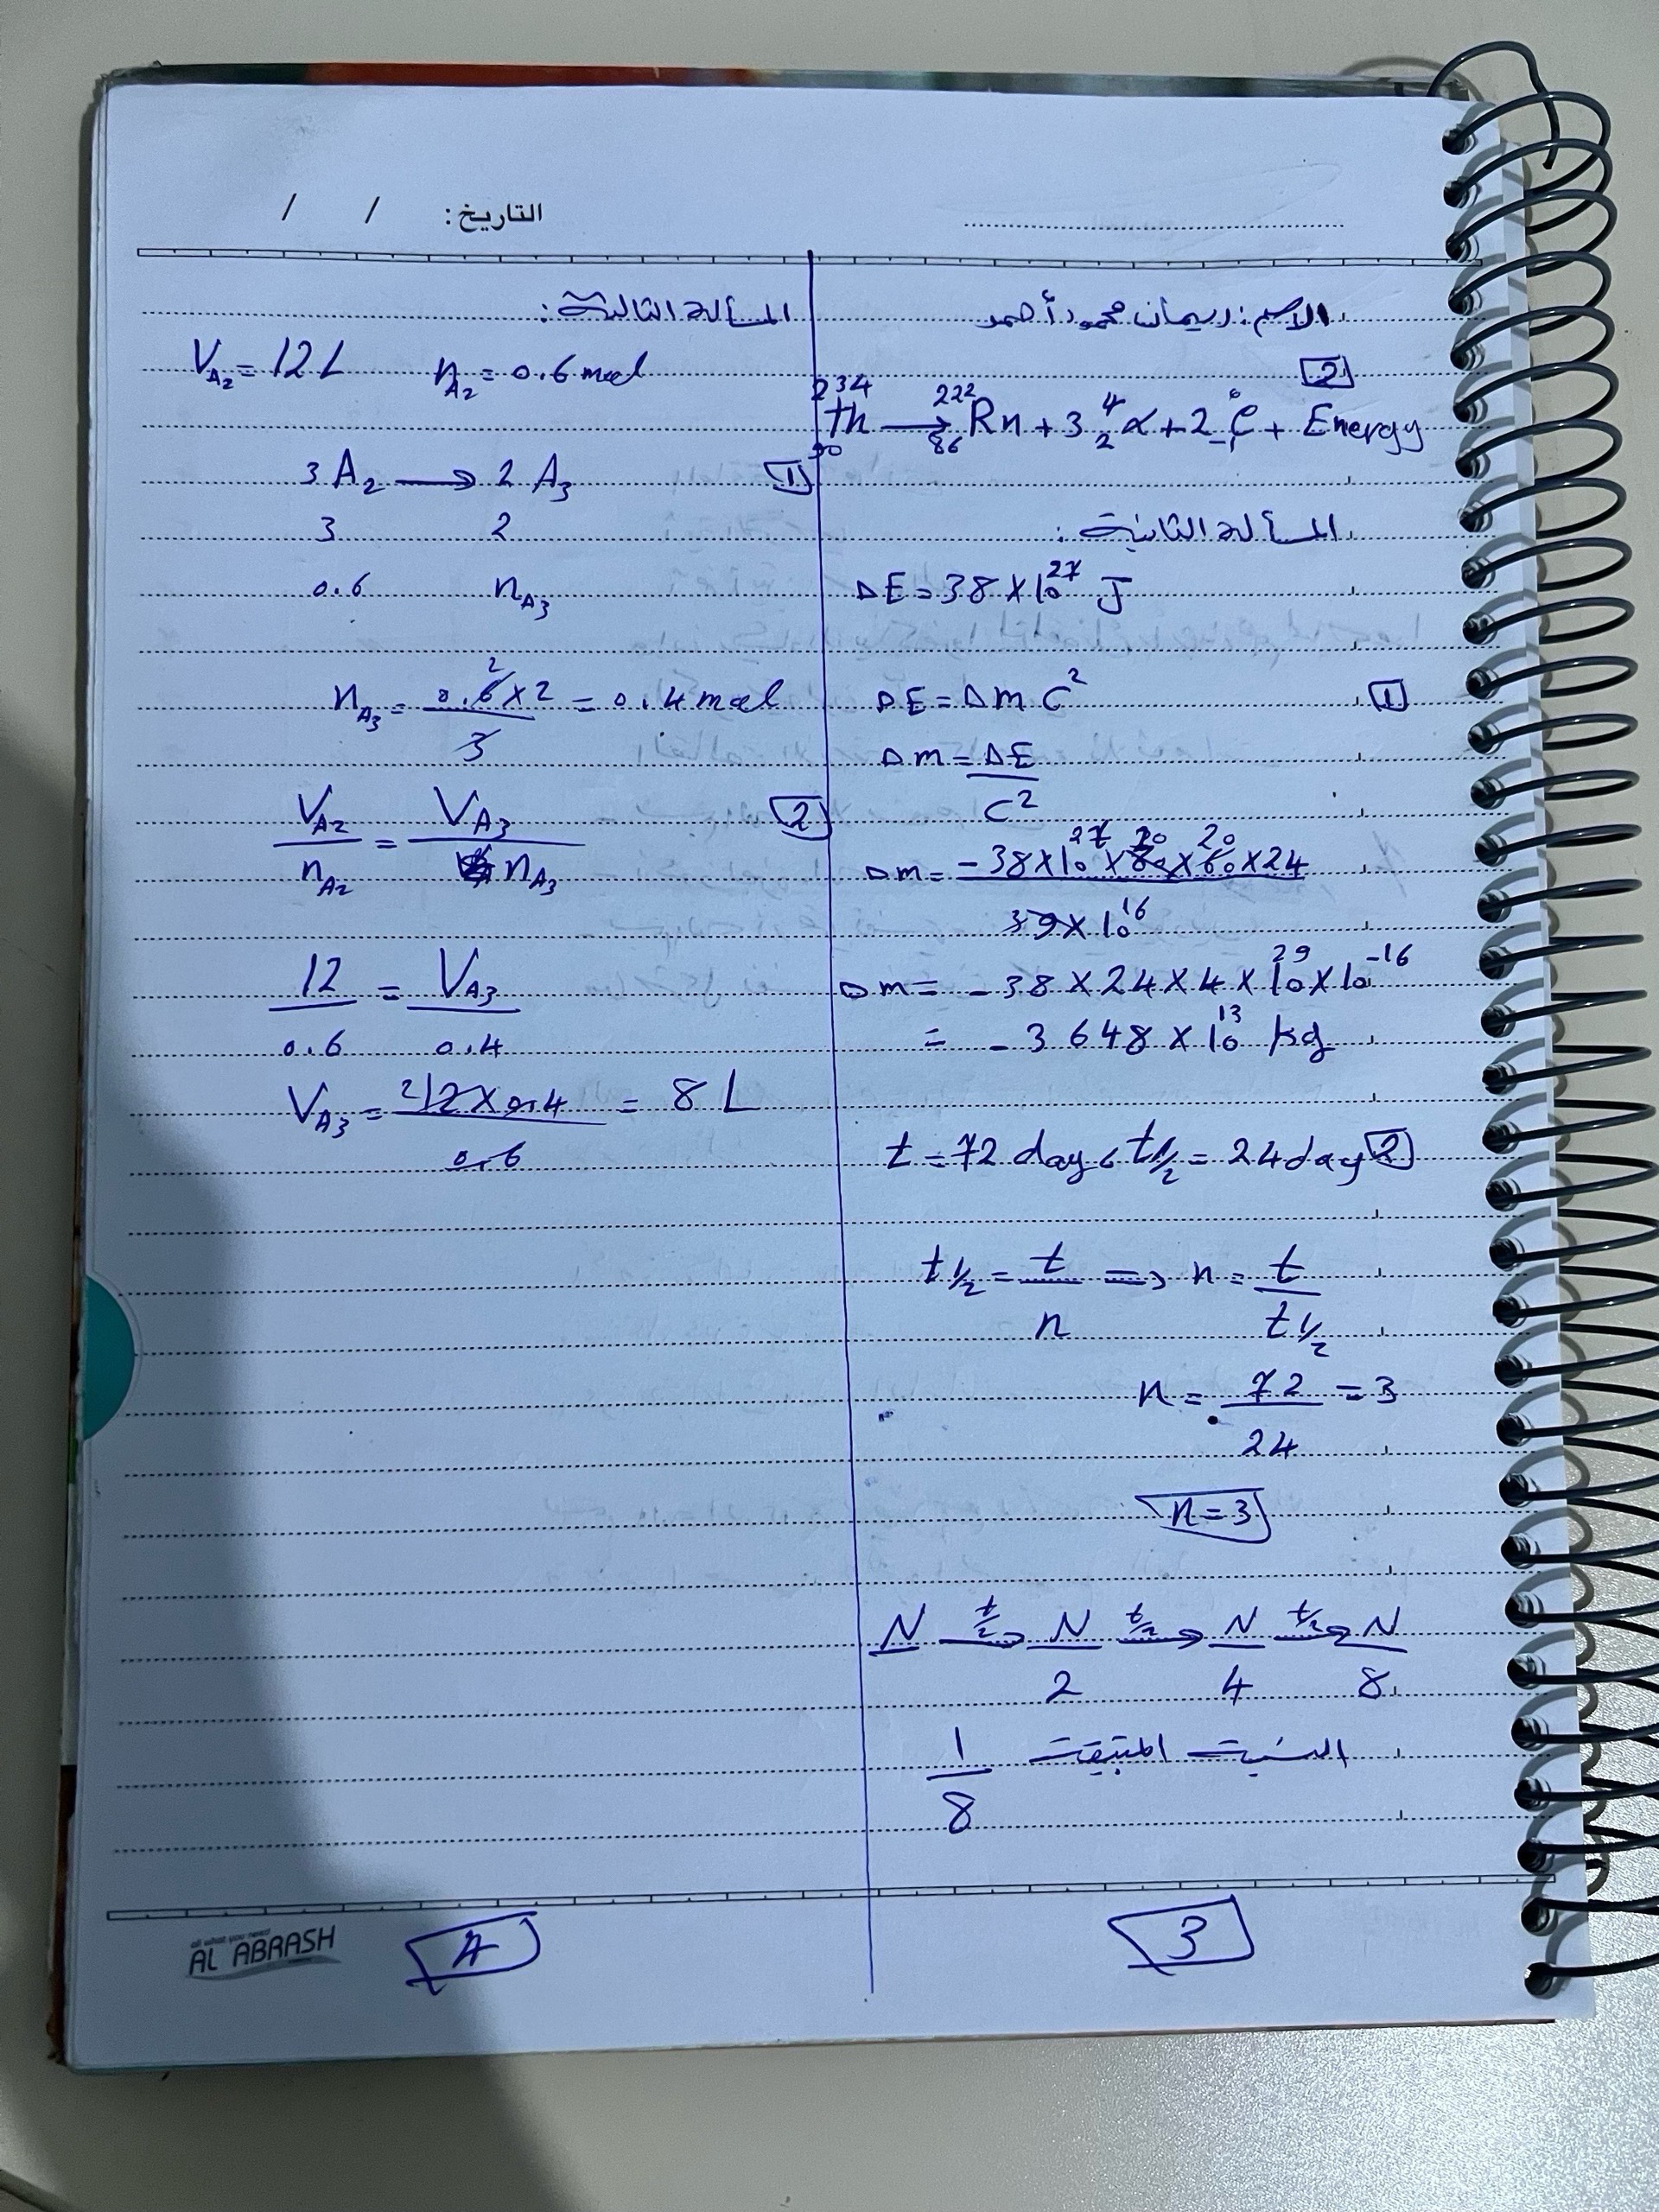 التاريخ: / /
الاسم: ريمان محمود أحمد
2
²³⁴₉₀th → ²²²₈₆Rn + 3 ⁴₂α + 2 ⁰₋₁e + Energy
المسألة الثانية:
ΔE = 38 × 10²⁷ J
1 ΔE = Δm C²
Δm = ΔE / C²
Δm = -38 × 10²⁷ × 60 × 60 × 24 / 9 × 10¹⁶
Δm = -38 × 24 × 4 × 10²⁹ × 10⁻¹⁶
= -3648 × 10¹³ kg
2 t = 72 day, t½ = 24 day
t½ = t / n ⇒ n = t / t½
n = 72 / 24 = 3
n = 3
N →(t½) N/2 →(t½) N/4 →(t½) N/8
النسبة المتبقية 1/8
3
المسألة الثالثة:
V_A₂ = 12 L n_A₂ = 0.6 mol
1 3 A₂ → 2 A₃
3 2
0.6 n_A₃
n_A₃ = 0.6 × 2 / 3 = 0.4 mol
2 V_A₂ / n_A₂ = V_A₃ / n_A₃
12 / 0.6 = V_A₃ / 0.4
V_A₃ = 12 × 0.4 / 0.6 = 8 L
4
all what you need
AL ABRASH